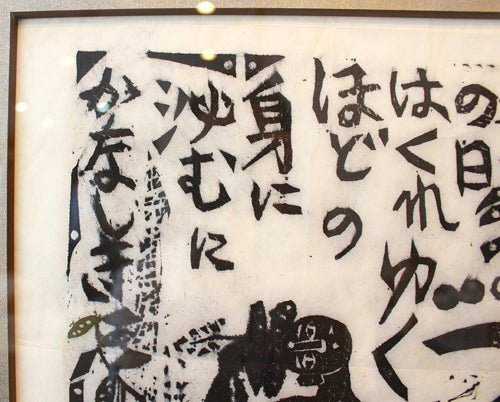 の日
はくれゆく
ほどの
身に
沁むに
かなしき